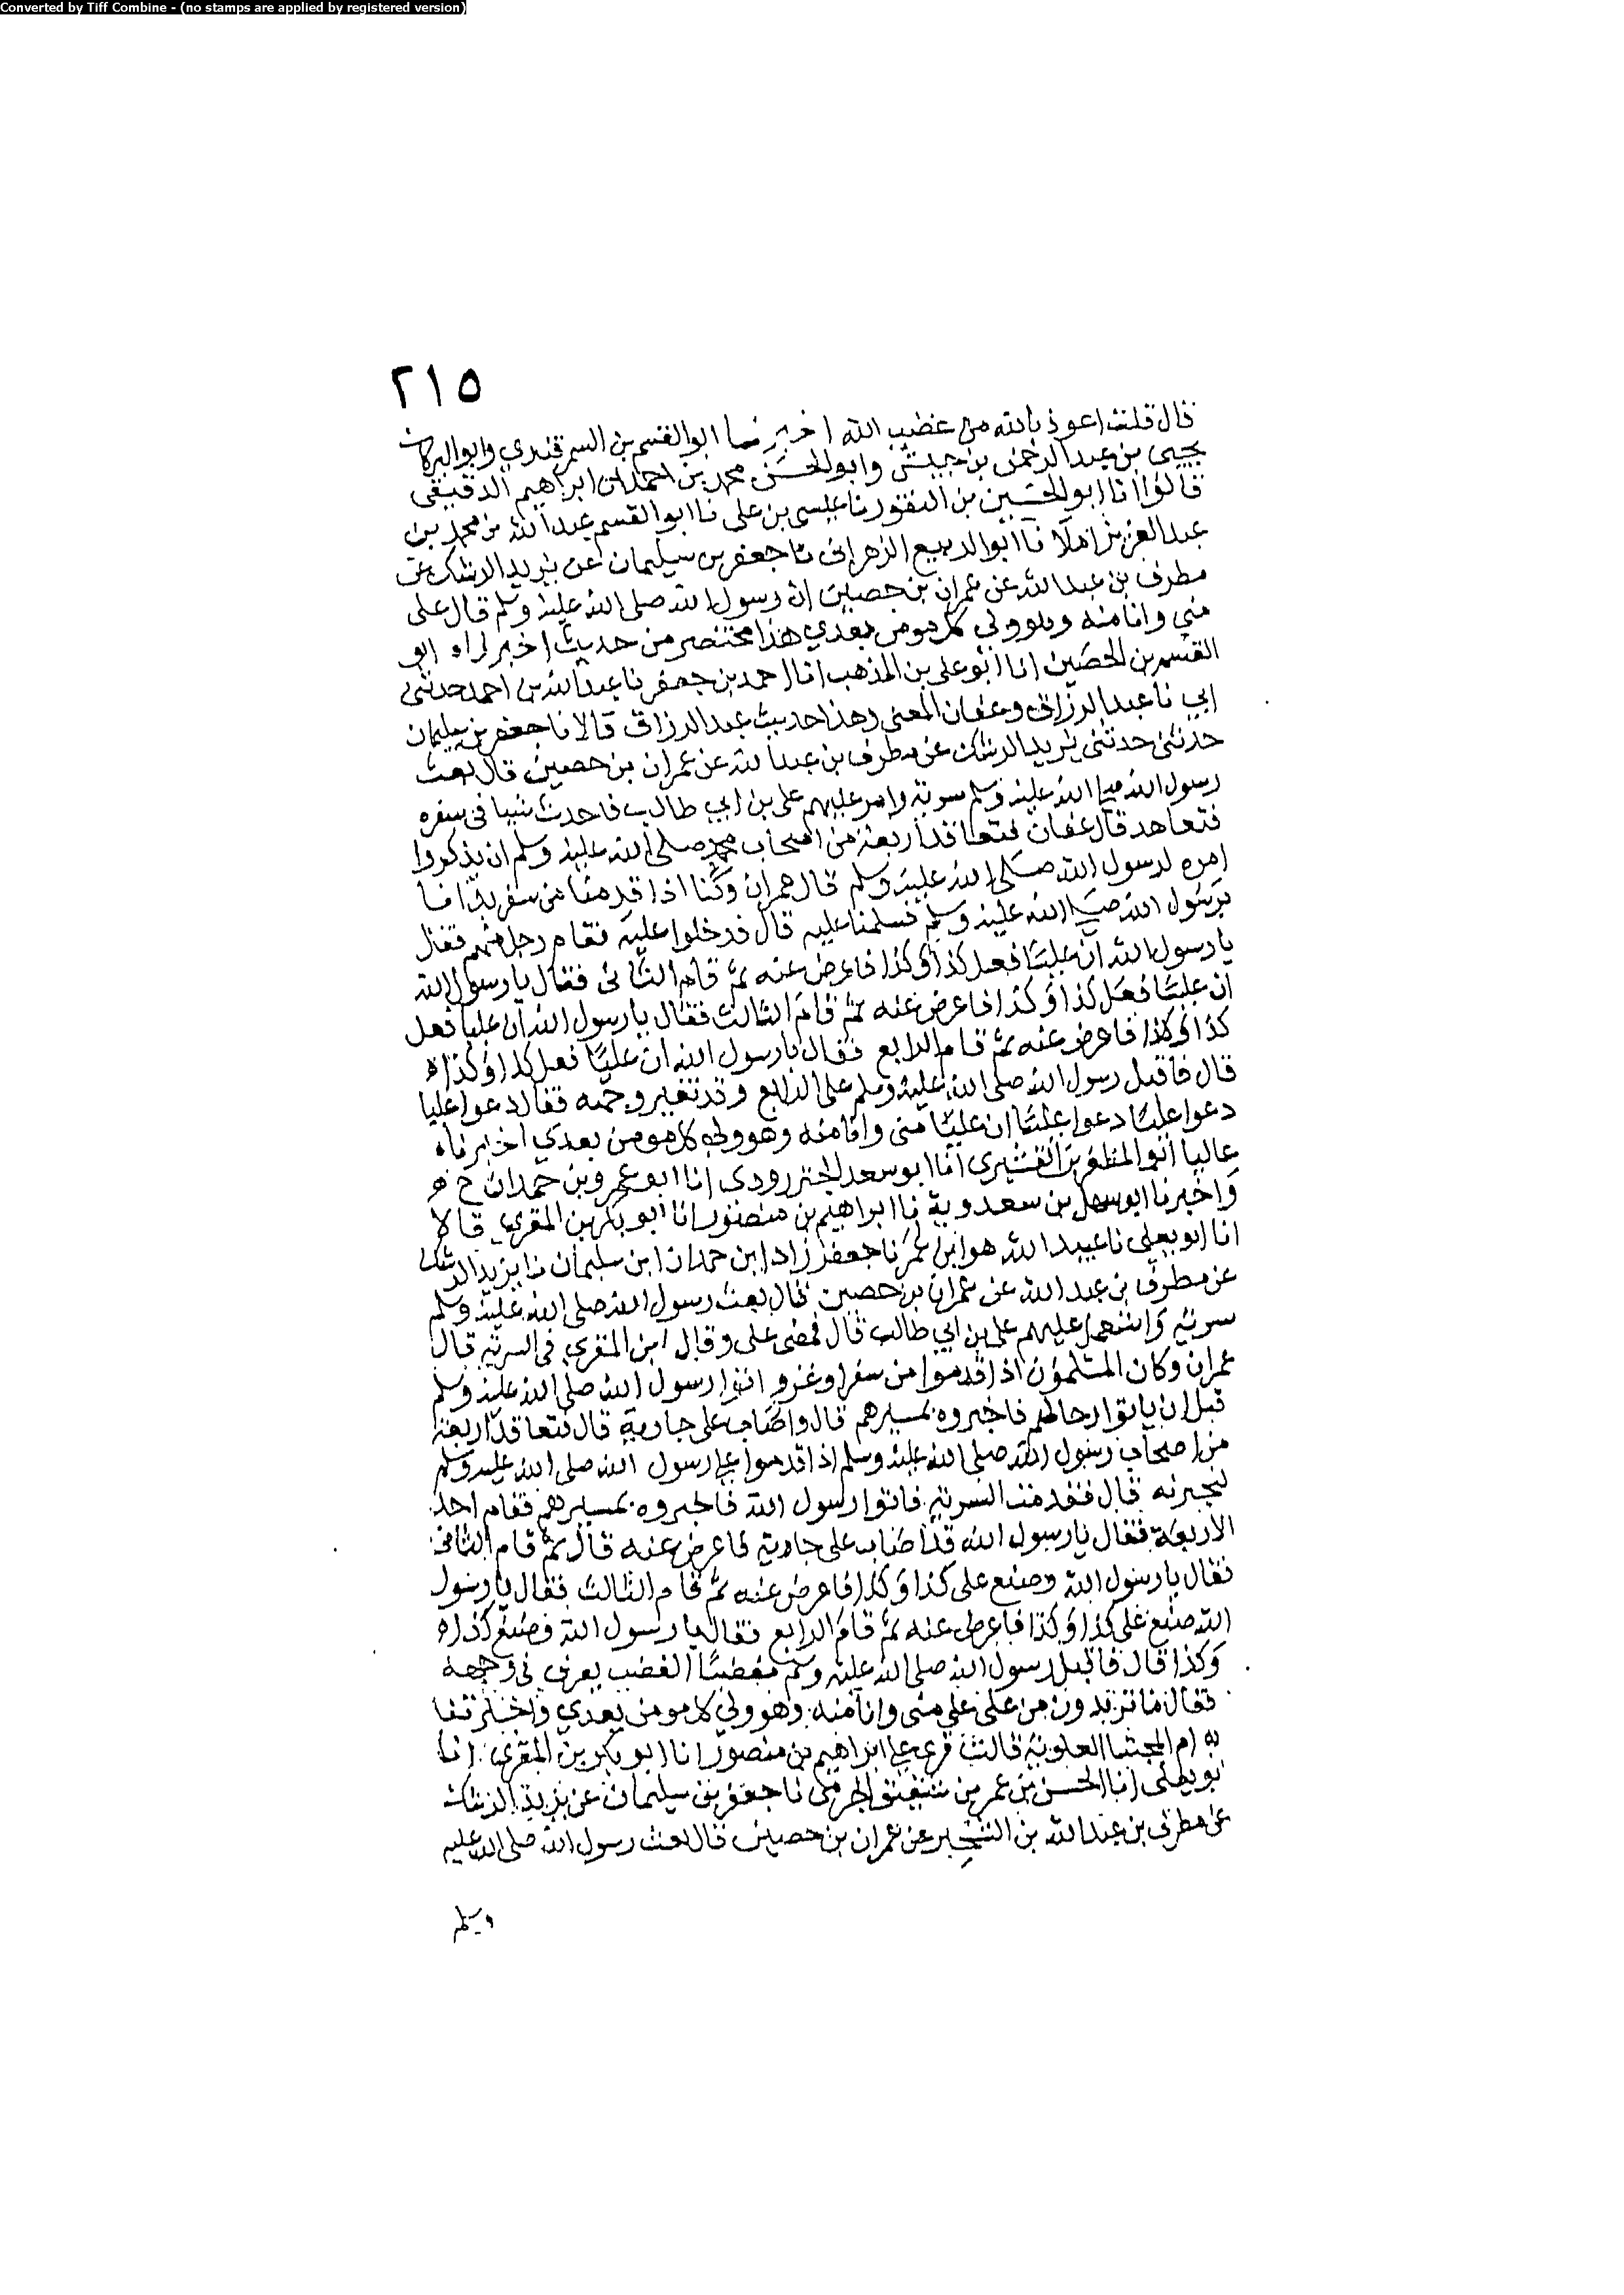 Converted by Tiff Combine - (no stamps are applied by registered version)
٢١٥
قال قلت اعوذ بالله من غضب الله اخبرنا ابو القسم بن السمرقندي وابو البركات
يحيى بن عبد الرحمن بن حبيش وابو الحسن محمد بن احمد بن ابراهيم الدقيقي
قالوا انا ابو الحسين بن النقور نا عيسى بن على نا ابو القسم عبد الله بن محمد بن
عبد العزيز املا نا ابو الربيع الزهراني نا جعفر بن سليمان عن يزيد الرشك عن
مطرف بن عبد الله عن عمران بن حصين ان رسول الله صلى الله عليه وسلم قال على
منى وانا منه وهو ولي كل مومن بعدي هذا مختصر من حديث اخبرناه ابو
القسم بن الحصين انا ابو على بن المذهب انا احمد بن جعفر نا عبد الله بن احمد حدثنى
ابي نا عبد الرزاق وعفان المعنى وهذا حديث عبد الرزاق قالا نا جعفر بن سليمان
حدثنى حدثنى يزيد الرشك عن مطرف بن عبد الله عن عمران بن حصين قال بعث
رسول الله صلى الله عليه وسلم سرية وامر عليهم على بن ابي طالب فاحدث شيا فى سفره
فتعاهد قال عفان فتعاقد اربعة من اصحاب محمد صلى الله عليه وسلم ان يذكروا
امره لرسول الله صلى الله عليه وسلم قال عمران وكنا اذا قدمنا من سفر بدانا
برسول الله صلى الله عليه وسلم فسلمنا عليه قال فدخلوا عليه فقام رجل منهم فقال
يا رسول الله ان عليا فعل كذا وكذا فاعرض عنه ثم قام الثاني فقال يا رسول الله
ان عليا فعل كذا وكذا فاعرض عنه ثم قام الثالث فقال يا رسول الله ان عليا فعل
كذا وكذا فاعرض عنه ثم قام الرابع فقال يا رسول الله ان عليا فعل كذا وكذا
قال فاقبل رسول الله صلى الله عليه وسلم على الرابع وقد تغير وجهه فقال دعوا عليا
دعوا عليا دعوا عليا ان عليا منى وانا منه وهو ولي كل مومن بعدي اخبرناه
عاليا ابو المظفر بن القشيرى انا ابو سعد الجنزرودى انا ابو عمرو بن حمدان ح
واخبرنا ابو سهل بن سعدوية نا ابراهيم بن منصور انا ابو بكر بن المقري قالا
انا ابو يعلى نا عبيد الله هو ابن عمر نا جعفر زاد ابن حمدان ابن سليمان نا يزيد الرشك
عن مطرف بن عبد الله عن عمران بن حصين قال بعث رسول الله صلى الله عليه وسلم
سرية واستعمل عليهم على بن ابي طالب قال فمضى على وقال ابن المقري فى السرية قال
عمران وكان المسلمون اذا قدموا من سفر او غزو اتوا رسول الله صلى الله عليه وسلم
قبل ان ياتوا رحالهم فاخبروه بمسيرهم قال واصاب على جارية قال فتعاقد اربعة
من اصحاب رسول الله صلى الله عليه وسلم اذا قدموا على رسول الله صلى الله عليه وسلم
ليخبرنه قال فقدمت السرية فاتوا رسول الله فاخبروه بمسيرهم فقام احد
الاربعة فقال يا رسول الله قد اصاب على جارية فاعرض عنه قال ثم قام الثانى
فقال يا رسول الله وصنع على كذا وكذا فاعرض عنه ثم قام الثالث فقال يا رسول
الله صنع على كذا وكذا فاعرض عنه ثم قام الرابع فقال يا رسول الله فصنع كذا
وكذا قال فاقبل رسول الله صلى الله عليه وسلم مغضبا الغضب يعرف فى وجهه
فقال ما تريدون من على على منى وانا منه وهو ولي كل مومن بعدي واخبرتنا
به ام المجتبا العلوية قالت قرى على ابراهيم بن منصور انا ابو بكر بن المقري انا
ابو يعلى انا الحسن بن عمر بن شقيق الجرمى نا جعفر بن سليمان عن يزيد الرشك
عن مطرف بن عبد الله بن الشخير عن عمران بن حصين قال بعث رسول الله صلى الله عليه
وسلم